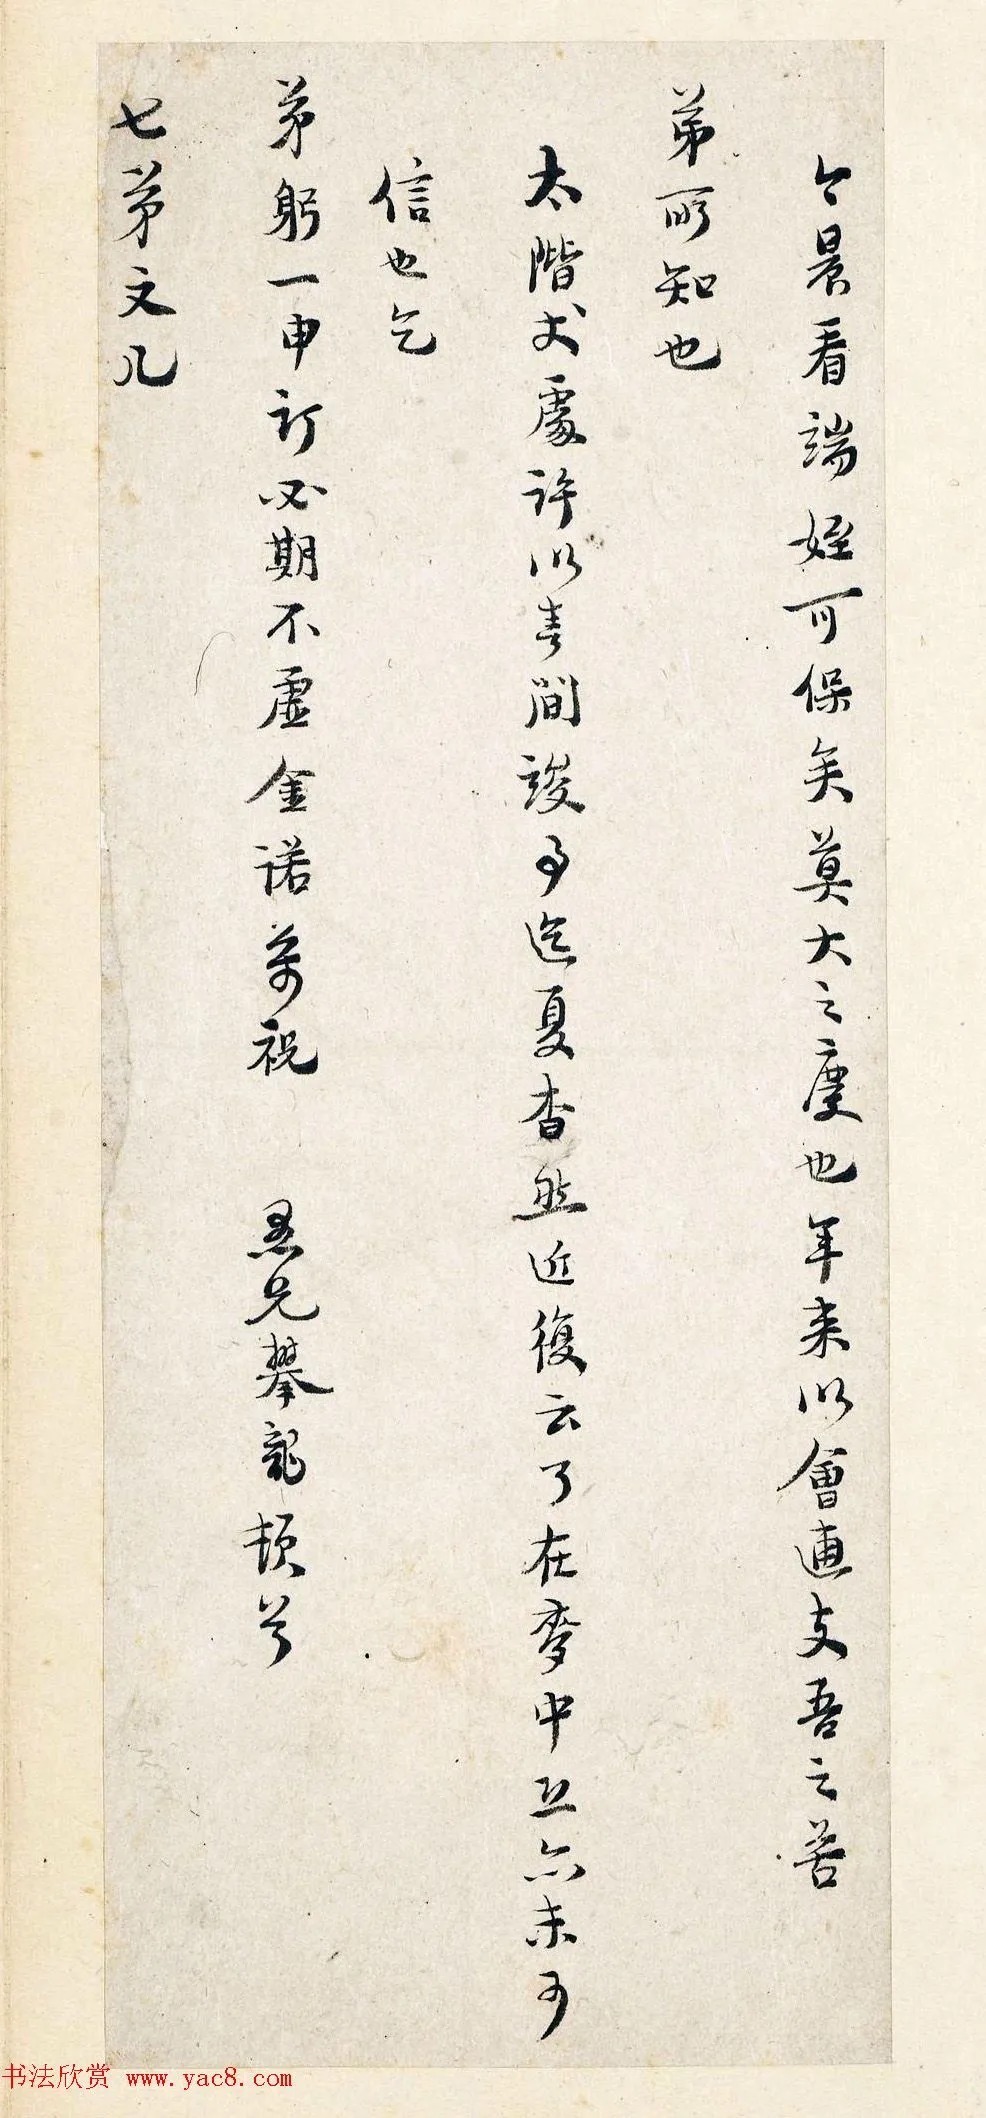 今晨看端姪可保矣莫大之慶也年来以會逋支吾之苦
弟所知也
太階丈處許以春間竣事迄夏杳然近復云了在麥中此亦未可
信也乞
弟躬一申訂必期不虛金諾萬祝 愚兄攀龍頓首
七弟文几
书法欣赏 www.yac8.com